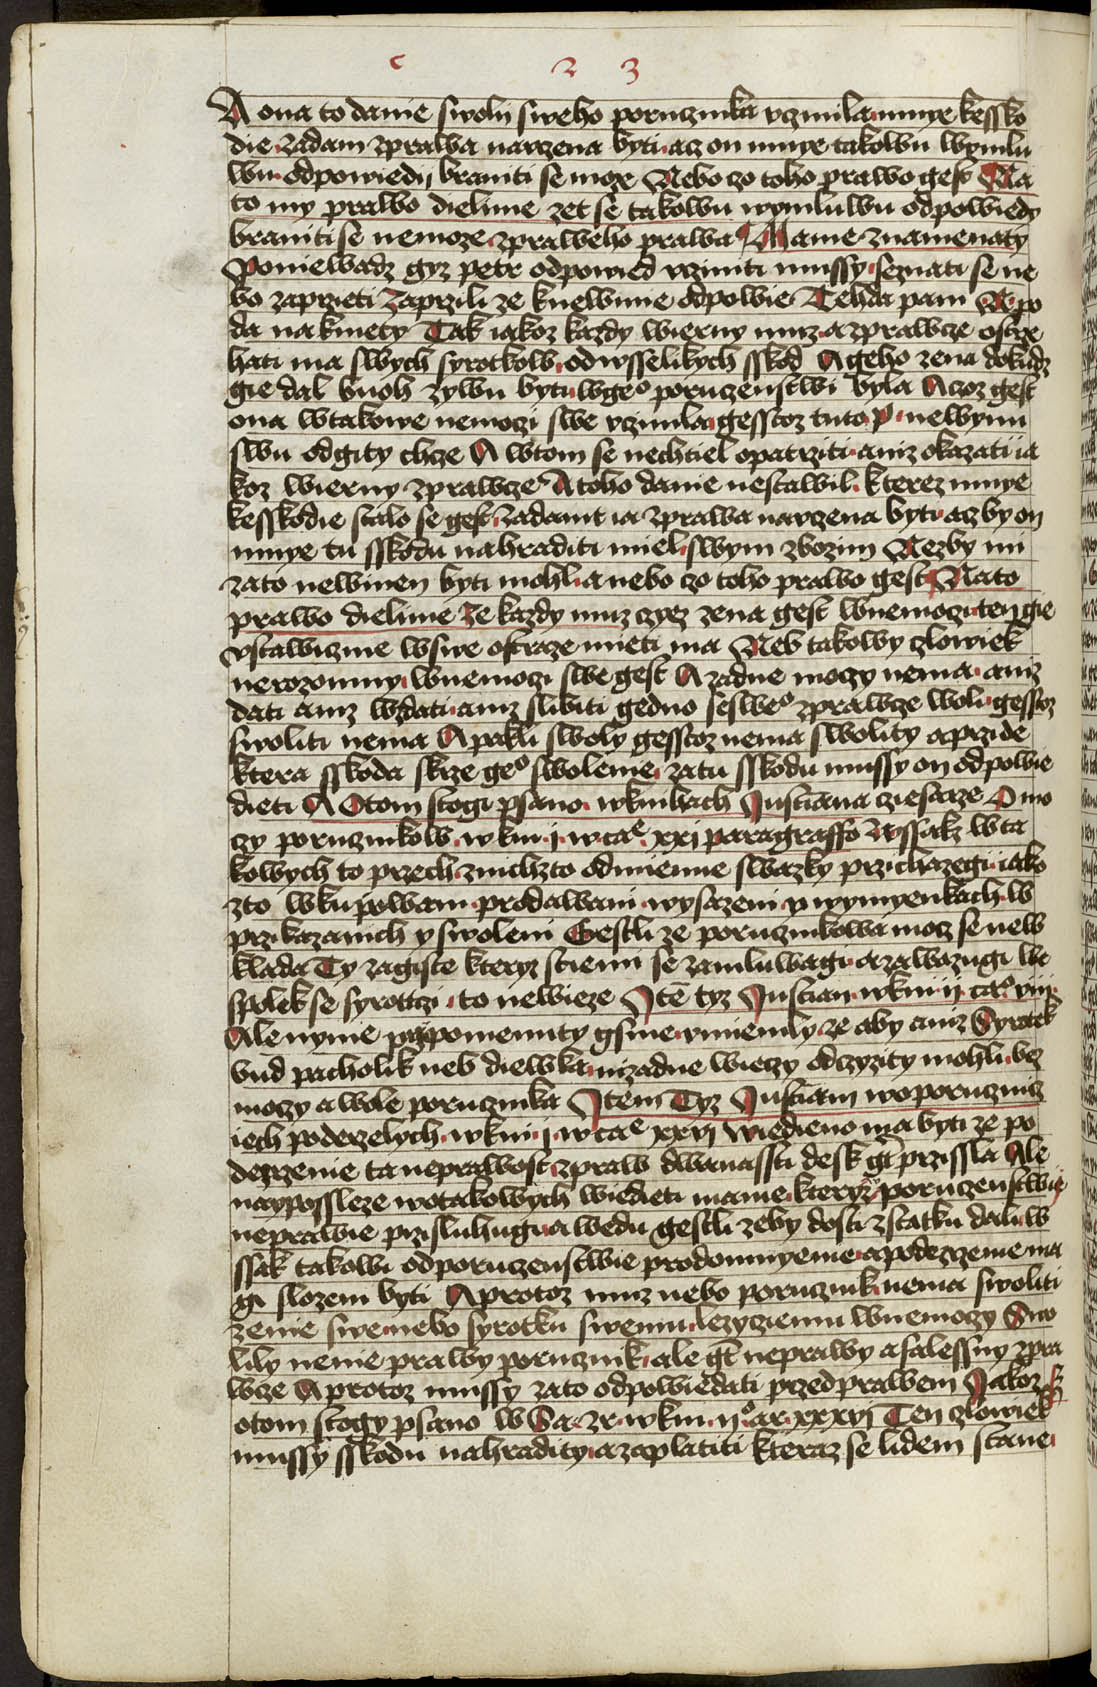 c 2 3
A ona to danie swoli sweho porucznika vczinila mnye kessko
die zadam zprawa nauczena byti acz on mnye takowu wymlu
wu odpowiedij braniti se moze Nebo czo toho prawo gest Na
to my prawo dielime zet se takowu wymluwu odpowiedy
braniti se nemoze zpraweho prawa Mame znamenaty
Poniewadz gyz petr odpowied vcziniti mussy seznati se ne
bo zaprzieti Zaprzili ze knewinne odpowie Tehda pani N po
da na kmety Tak iakoz kazdy wierny muz a zprawcze ostrze
hati ma swych syrotkow od wsselikych sskod A geho zena dokudz
gie dal buoh zywu byti wgeo poruczenstwi byla A czoz gest
ona wtakowe nemoczi swe vczinila gessczoz tuto p newynu
swu odgity chcze A wtom se nechtiel opatrziti aniz okazati ia
koz wierny zprawcze A toho danie nestawil kterez mnye
kesskodie stalo se gest Zadamt ia zprawa nauczena byti acz by on
mnye tu sskodu nahraditi miel swym zbozim Nezby mi
zato newinen byti mohl a nebo czo toho prawo gest Nato
prawo dielime Ze kazdy muz czyez zena gest wnemoczi ten gie
vstawiczne wswe ostraze mieti ma Neb takowy czlowiek
nerozomny wnemoczi swe gest A zadne moczy nema aniz
dati aniz wzdati aniz slibiti gedno sesweo zprawcze woli gesstoz
swoliti nema A pakli swoly gesstoz nema swolity a przide
ktera sskoda skrze geo swolenie zatu sskodu mussy on odpowie
dieti A O tom stogi psano wknihach Justiana cziesarze O mo
czy porucznikow w kni j w cae xxj paragraffo Wssak wta
kowych to przech znichzto odmienne swazky przichazegi iako
zto wkupowani prodawani wysazeni y wymyenkach w
przikazanich y swoleni Gestli ze porucznikowa mocz se new
klada Ty zagiste kteryz stiemi se zamluwagi a zawazugi we
spolek se syrottczi to newieze Jtem tyz Justian wkni ij cao viij
Ale nynie przipomenuty gsme vmienily ze aby aniz Syrotek
bud pacholik neb diewka nizadne wieczy odczyzity mohli bez
moczy a wole porucznika Jtem Tyz Justiam wo porucznicz
iech poderzelych w kni j w cae xxvj Wiedieno ma byti ze po
dezrzenie ta neprawost zpraw dwanassti desk gt przissla Ale
nayposleze wotakowych wiedieti mame kteryz poruczenstwie
neprawie przisluhugi a wedu gestli zeby dosti zstatku dali w
ssak takowi od poruczenstwie prodomnyenie a podezrzenie ma
gi slozeni byti A protoz muz nebo porucznik nema swoliti
zenie swe nebo syrotku swemu lezyczimu wnemoczy Swo
lily nenie prawy porucznik ale gt neprawy a falessny zpra
wcze A protoz mussy zato odpowiedati przed prawem Jakoz
otom stogy psano w Sa zr w kni ijo ar xxxvj Ten czlowiek
mussy sskodu nahradity a zaplatiti kteraz se lidem stane